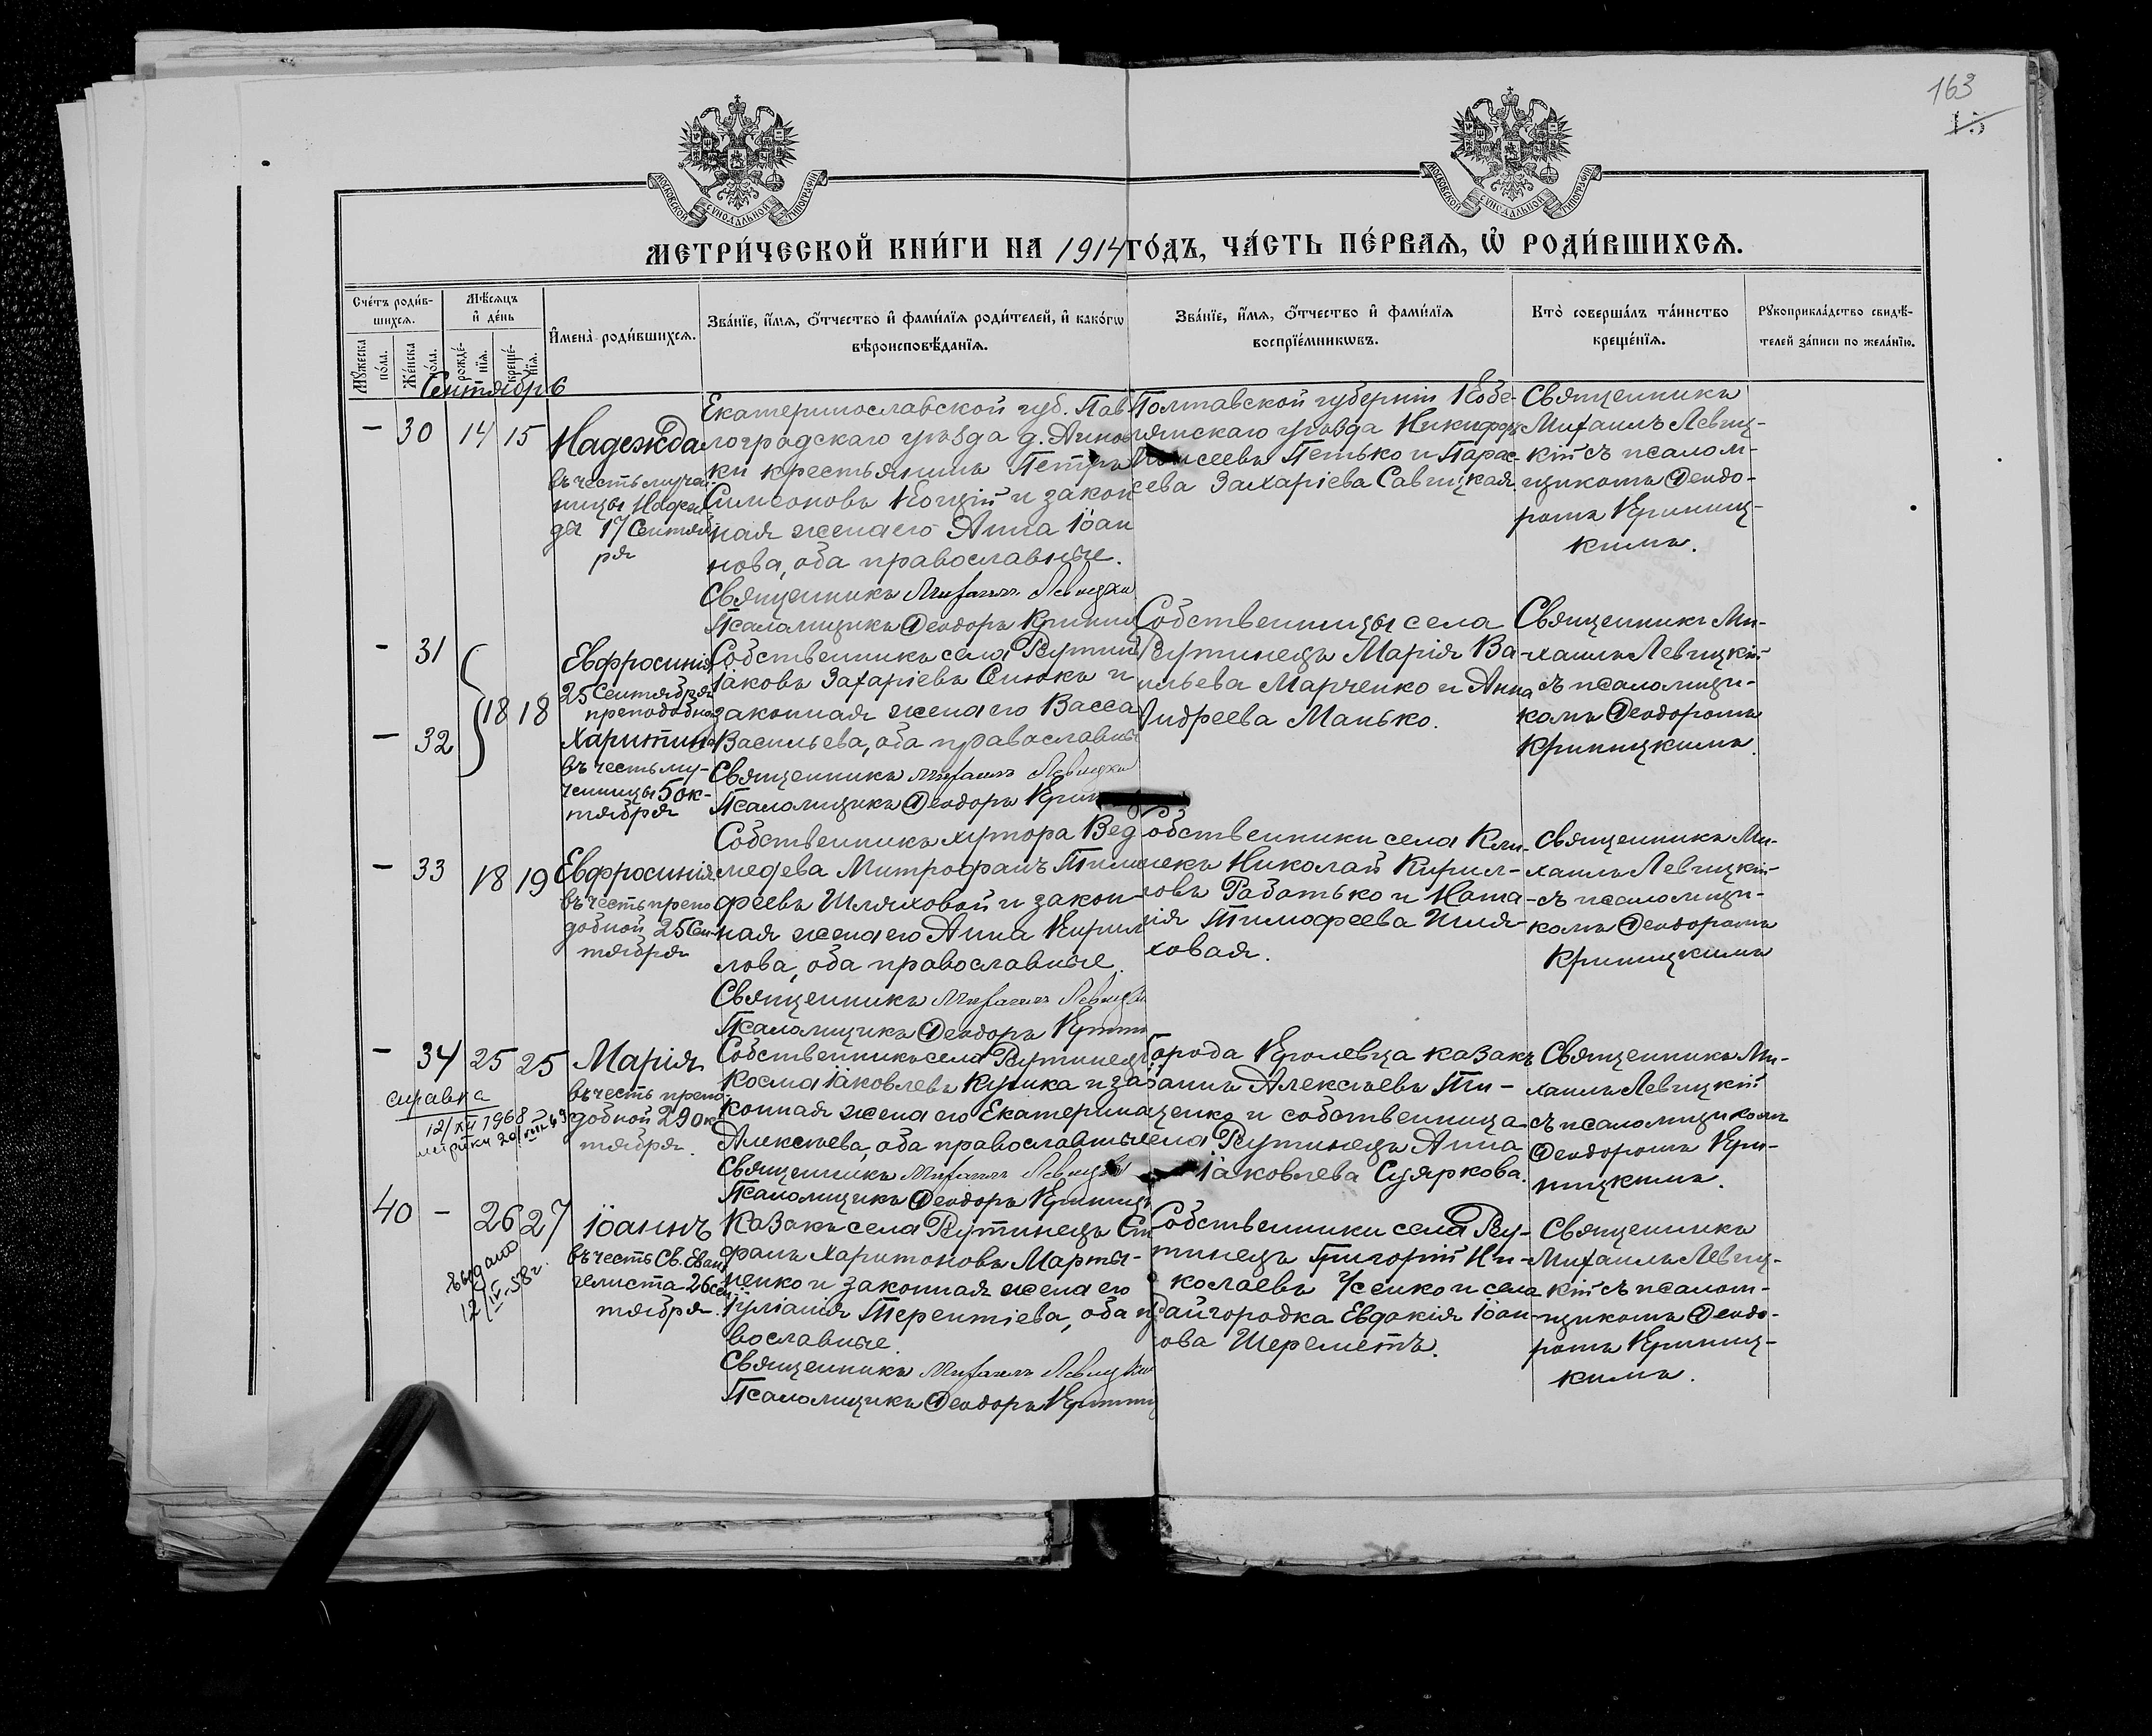 163
15
МОСКОВСКОЙ СѴНОДАЛЬНОЙ ТИПОГРАФІИ
МОСКОВСКОЙ СѴНОДАЛЬНОЙ ТИПОГРАФІИ
МЕТРИ́ЧЕСКОЙ КНИ́ГИ НА 1914 ГО́ДЪ, ЧА́СТЬ ПЕ́РВАѦ, Ѡ҆ РОДИ́ВШИХСѦ.
Сче́тъ роди́в-
шихсѧ.
Мꙋ́жеска по́ла.
Же́нска по́ла.
Мѣ́сѧцъ
и҆ де́нь
рожде́-
нїѧ.
креще́-
нїѧ.
И҆мена̀ роди́вшихсѧ.
Зва́нїе, и҆́мѧ, ѻ҆́тчество и҆ фами́лїѧ роди́телей, и҆ како́гѡ
вѣроисповѣ́данїѧ.
Зва́нїе, и҆́мѧ, ѻ҆́тчество и҆ фами́лїѧ
воспрїе́мникѡвъ.
Кто̀ соверша́лъ та́инство
креще́нїѧ.
Рꙋкоприкла́дство свидѣ́-
телей за́писи по жела́нїю.
Сентябрь
- 30 14 15
Надежда
въ честь муче
ницы Надеж
ды 17 Сентяб
ря
Екатеринославской губ. Пав
лоградскаго уѣзда д. Аннов
ки крестьянинъ Петръ
Симеоновъ Коцій и закон
ная жена его Анна Іоан
нова, оба православные.
Священникъ Михаилъ Левицкій
Псаломщикъ Ѳеодоръ Криниц
Полтавской губерніи Кобе-
лякскаго уѣзда Никифоръ
Моисеевъ Петько и Парас-
кева Захаріева Савицкая.
Священникъ
Михаилъ Левиц-
кій съ псалом-
щикомъ Ѳеодо-
ромъ Криниц-
кимъ.
- 31
- 32
18 18
Евфросинія
25 Сентября
преподобной
Харитина
въ честь му-
ченицы 5 Ок-
тября
Собственникъ села Рутин
Іаковъ Захаріевъ Сенюкъ и
законная жена его Васса
Васильева, оба православны
Священникъ Михаилъ Левицкій
Псаломщикъ Ѳеодоръ Крин
Собственницы села
Рутинецъ Марія Ва-
ильева Марченко и Анна
Андреева Манько.
Священникъ Ми-
хаилъ Левицкій
съ псаломщи-
комъ Ѳеодоромъ
Криницкимъ.
- 33 18 19
Евфросинія
въ честь препо
добной 25 Сен-
тября
Собственникъ хутора Вед
медева Митрофанъ Тимо
феевъ Шляховой и закон-
ная жена его Анна Кирил
лова, оба православные.
Священникъ Михаилъ Левицкій
Псаломщикъ Ѳеодоръ Крин
Собственники села Кли-
шекъ Николай Кирил-
ловъ Работько и Ната-
лія Тимофеева Шля-
ховая.
Священникъ Ми-
хаилъ Левицкій
съ псаломщи-
комъ Ѳеодоромъ
Криницкимъ
- 34 25 25
справка
12/XII 1968
Марія
въ честь препо
добной 29 Ок
тября.
Собственникъ села Рутинецъ
Косма Іаковлевъ Курика и за
конная жена его Екатерина
Алексѣева, оба православные
Священникъ Михаилъ Левицкій
Псаломщикъ Ѳеодоръ Криниц
Города Кролевца казакъ
Іоаннъ Алексѣевъ Ти-
щенко и собственница
села Рутинецъ Анна
Іаковлева Суяркова.
Священникъ Ми-
хаилъ Левицкій
съ псаломщикомъ
Ѳеодоромъ Кри-
ницкимъ.
40 - 26 27
выдано
12/IV-58г.
Іоаннъ
въ честь Св. Еван
гелиста 26 Сен
тября.
Казакъ села Рутинецъ Ст
фанъ Харитоновъ Марты-
ненко и законная жена его
Іуліанія Терентіева, оба п
вославные.
Священникъ Михаилъ Левицкій
Псаломщикъ Ѳеодоръ Криниц
Собственники села Ру-
тинецъ Григорій Ни-
колаевъ Усенко и села
Райгородка Евдокія Іоан-
ова Шереметъ.
Священникъ
Михаилъ Левиц-
кій съ псалом-
щикомъ Ѳеодо-
ромъ Криниц-
кимъ.